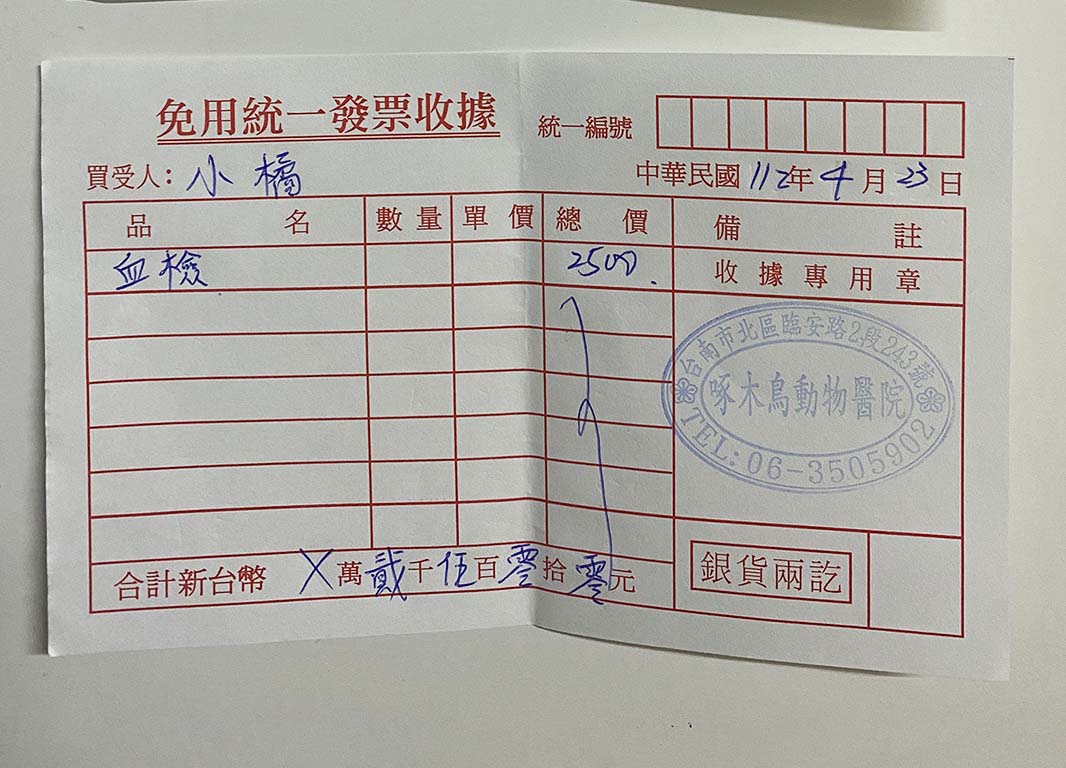 免用統一發票收據
統一編號
買受人：小橘
中華民國112年4月23日
品名 數量 單價 總價 備註
血檢 2500. 收據專用章
台南市北區臨安路2段243號
啄木鳥動物醫院
TEL:06-3505902
合計新台幣 X萬貳千伍百零拾零元
銀貨兩訖